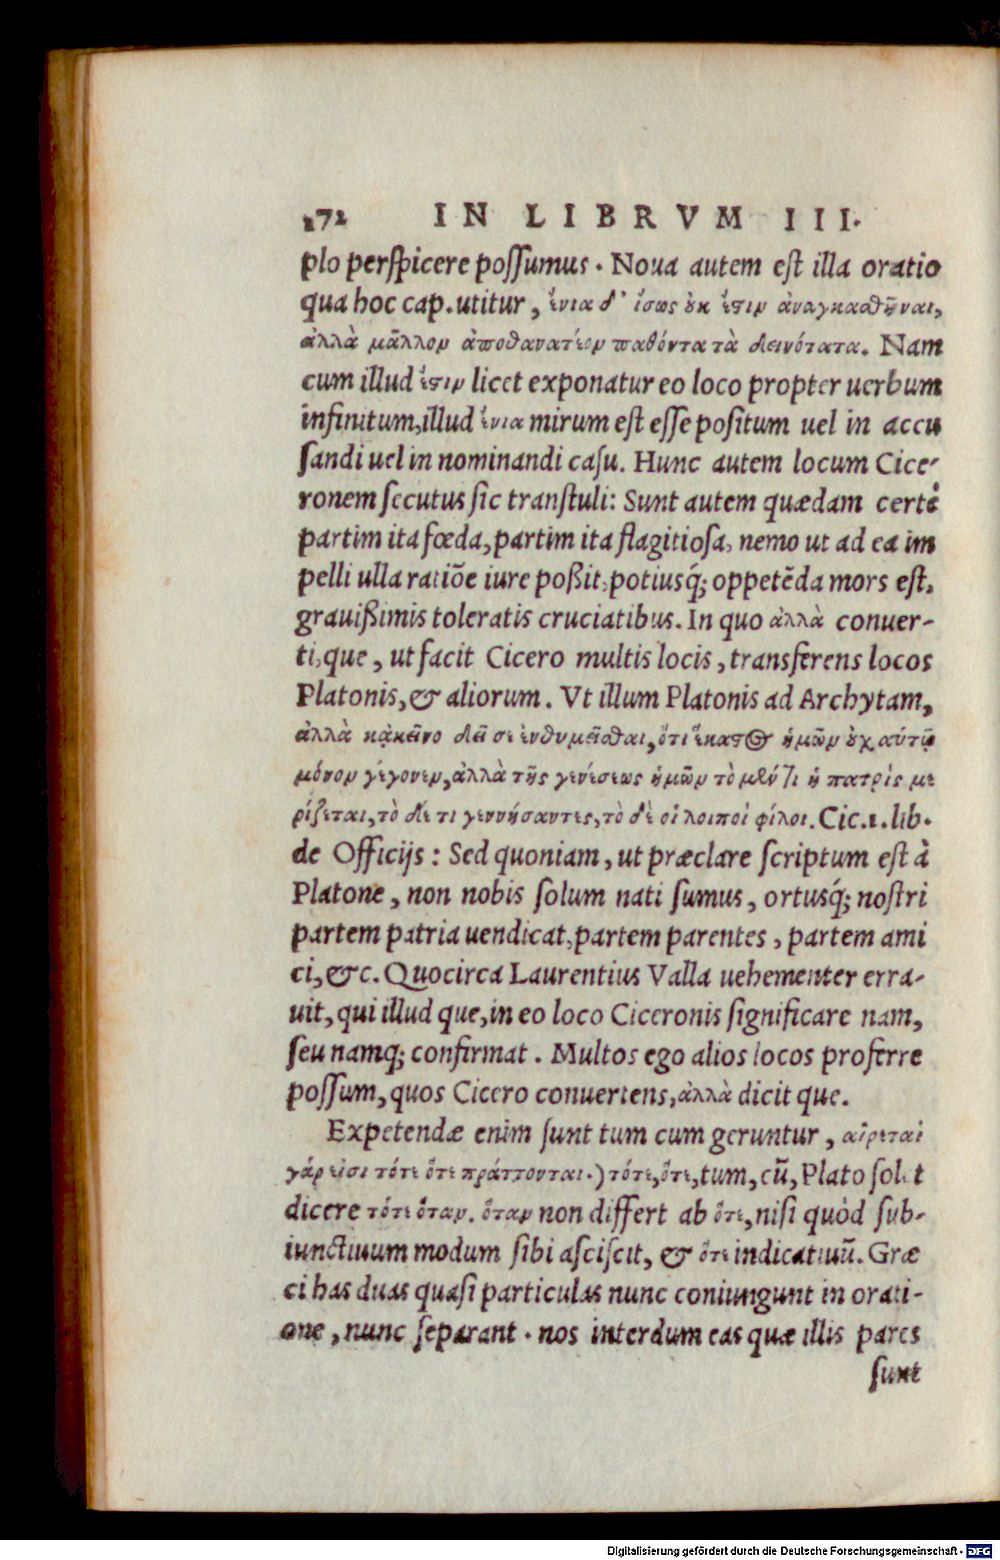 172 IN LIBRVM III.
plo perspicere possumus. Noua autem est illa oratio
qua hoc cap. utitur, ἔνια δ' ἴσως οὐκ ἔστιν ἀναγκασθῆναι,
ἀλλὰ μᾶλλον ἀποθανατέον παθόντα τὰ δεινότατα. Nam
cum illud ἔστιν licet exponatur eo loco propter uerbum
infinitum, illud ἔνια mirum est esse positum uel in accu
sandi uel in nominandi casu. Hunc autem locum Cice-
ronem secutus sic transtuli: Sunt autem quædam certè
partim ita fœda, partim ita flagitiosa, nemo ut ad ea im
pelli ulla ratiõe iure poßit, potiusq́; oppetẽda mors est,
grauißimis toleratis cruciatibus. In quo ἀλλὰ conuer-
ti, que, ut facit Cicero multis locis, transferens locos
Platonis, & aliorum. Vt illum Platonis ad Archytam,
ἀλλὰ κᾀκεῖνο δεῖ σε ἐνθυμεῖσθαι, ὅτι ἕκαστος ἡμῶν οὐχ αὑτῷ
μόνον γέγονεν, ἀλλὰ τῆς γενέσεως ἡμῶν τὸ μέν τι ἡ πατρὶς με
ρίζεται, τὸ δέ τι γεννήσαντες, τὸ δὲ οἱ λοιποὶ φίλοι. Cic. 1. lib.
de Officijs: Sed quoniam, ut præclare scriptum est à
Platone, non nobis solum nati sumus, ortusq́; nostri
partem patria uendicat, partem parentes, partem ami
ci, &c. Quocirca Laurentius Valla uehementer erra-
uit, qui illud que, in eo loco Ciceronis significare nam,
seu namq; confirmat. Multos ego alios locos proferre
possum, quos Cicero conuertens, ἀλλὰ dicit que.
Expetendæ enim sunt tum cum geruntur, αἱρεταὶ
γάρ εἰσι τότε ὅτε πράττονται.) τότε, ὅτε, tum, cũ, Plato solet
dicere τότε ὅταν. ὅταν non differt ab ὅτε, nisi quòd sub-
iunctiuum modum sibi asciscit, & ὅτε indicatiuũ. Græ
ci has duas quasi particulas nunc coniungunt in orati-
one, nunc separant. nos interdum eas quæ illis pares
sunt
Digitalisierung gefördert durch die Deutsche Forschungsgemeinschaft - DFG